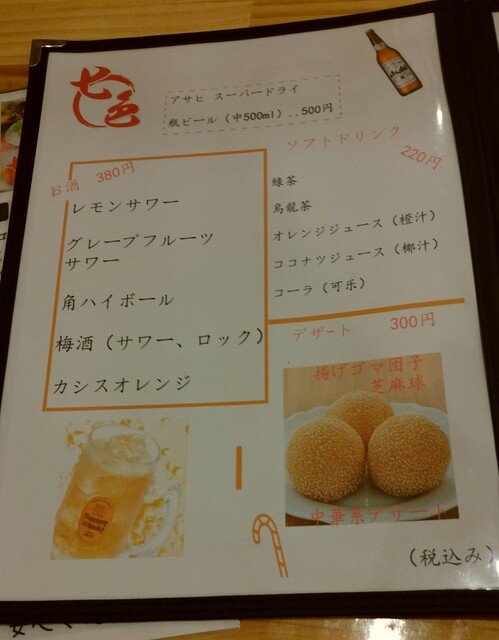 七色
アサヒ スーパードライ
瓶ビール（中500ml）..500円
お酒 380円
レモンサワー
グレープフルーツ
サワー
角ハイボール
梅酒（サワー、ロック）
カシスオレンジ
ソフトドリンク
220円
緑茶
烏龍茶
オレンジジュース（橙汁）
ココナツジュース（椰汁）
コーラ（可乐）
デザート 300円
揚げゴマ団子
芝麻球
中華系デザート
（税込み）